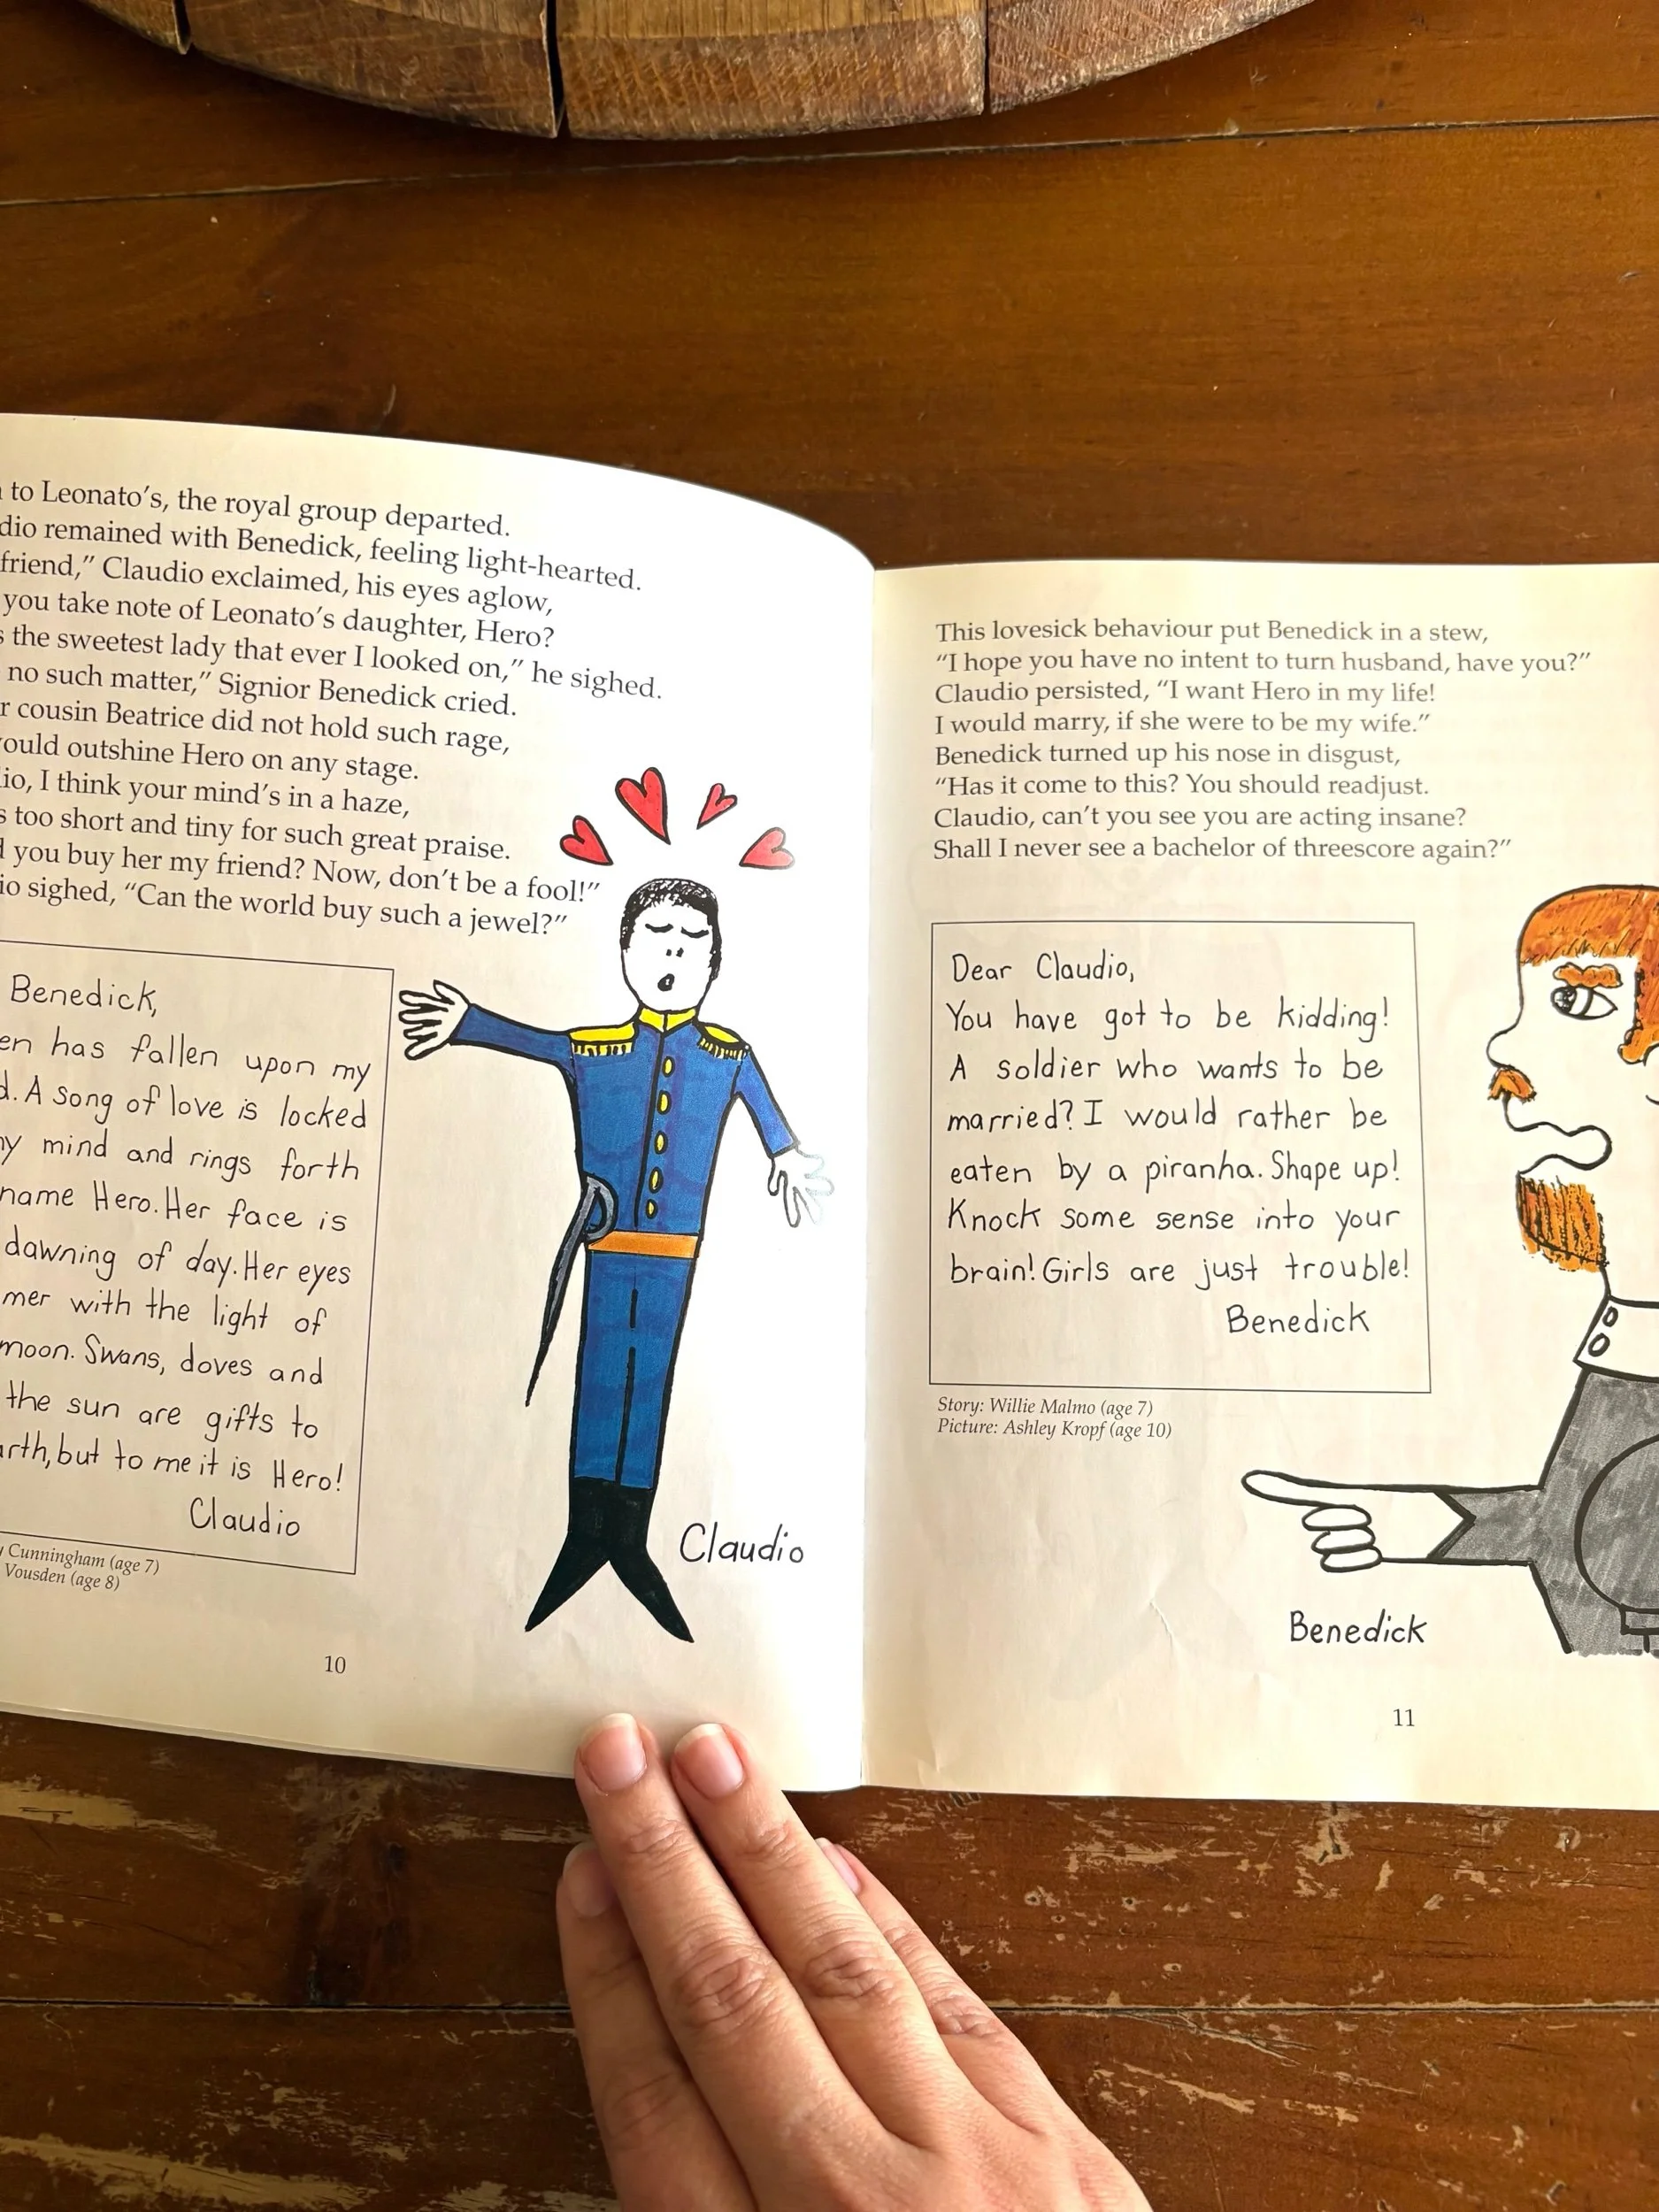 to Leonato's, the royal group departed.
dio remained with Benedick, feeling light-hearted.
friend,” Claudio exclaimed, his eyes aglow,
you take note of Leonato's daughter, Hero?
the sweetest lady that ever I looked on,” he sighed.
no such matter,” Signior Benedick cried.
r cousin Beatrice did not hold such rage,
ould outshine Hero on any stage.
io, I think your mind's in a haze,
too short and tiny for such great praise.
you buy her my friend? Now, don't be a fool!”
io sighed, “Can the world buy such a jewel?”
Benedick,
en has fallen upon my
d. A song of love is locked
y mind and rings forth
name Hero. Her face is
dawning of day. Her eyes
mer with the light of
moon. Swans, doves and
the sun are gifts to
arth, but to me it is Hero!
Claudio
Cunningham (age 7)
Vousden (age 8)
Claudio
10
This lovesick behaviour put Benedick in a stew,
“I hope you have no intent to turn husband, have you?”
Claudio persisted, “I want Hero in my life!
I would marry, if she were to be my wife.”
Benedick turned up his nose in disgust,
“Has it come to this? You should readjust.
Claudio, can't you see you are acting insane?
Shall I never see a bachelor of threescore again?”
Dear Claudio,
You have got to be kidding!
A soldier who wants to be
married? I would rather be
eaten by a piranha. Shape up!
Knock some sense into your
brain! Girls are just trouble!
Benedick
Story: Willie Malmo (age 7)
Picture: Ashley Kropf (age 10)
Benedick
11